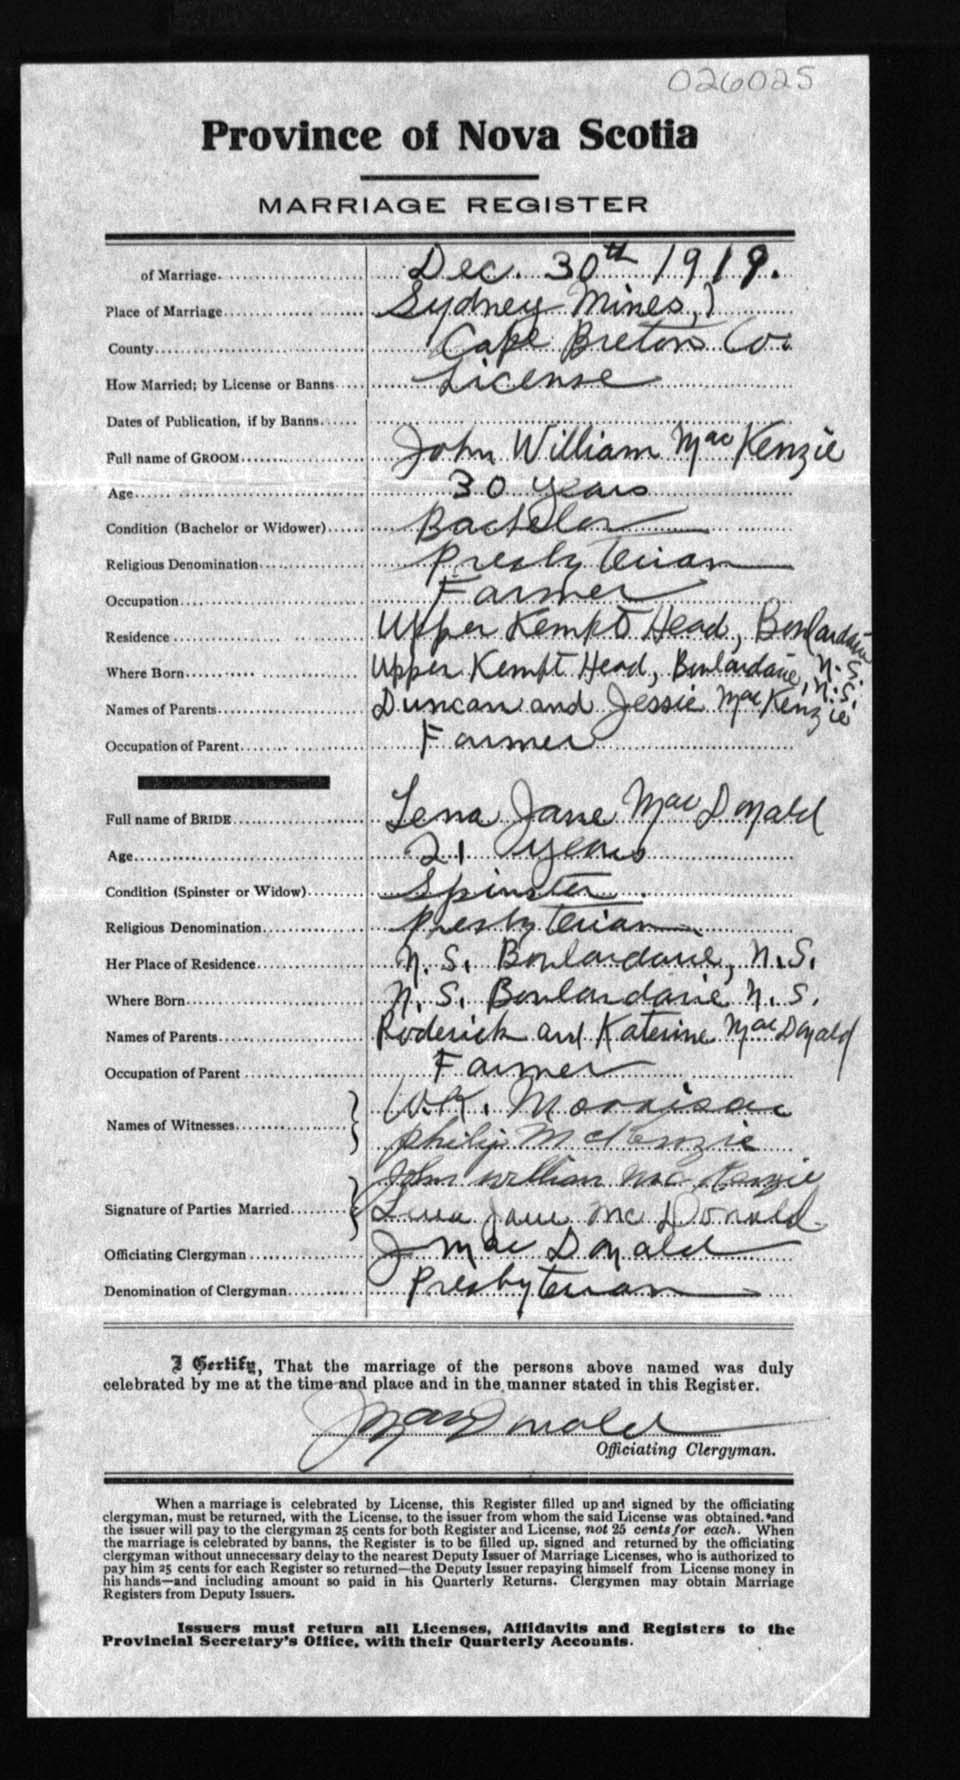 026025
Province of Nova Scotia
MARRIAGE REGISTER
of Marriage Dec. 30th 1919.
Place of Marriage Sydney Mines,
County Cape Breton Co.
How Married; by License or Banns License
Dates of Publication, if by Banns
Full name of GROOM John William MacKenzie
Age 30 years
Condition (Bachelor or Widower) Bachelor
Religious Denomination Presbyterian
Occupation Farmer
Residence Upper Kempt Head, Boulardarie N.S.
Where Born Upper Kempt Head, Boulardarie, N.S.
Names of Parents Duncan and Jessie MacKenzie
Occupation of Parent Farmer
Full name of BRIDE Lena Jane MacDonald
Age 21 years
Condition (Spinster or Widow) Spinster
Religious Denomination Presbyterian
Her Place of Residence N. S. Boulardarie, N.S.
Where Born N. S. Boulardarie N. S.
Names of Parents Roderick and Katerine MacDonald
Occupation of Parent Farmer
Names of Witnesses W.K. Morrison
Philip McKenzie
Signature of Parties Married John William MacKenzie
Lena Jane McDonald
Officiating Clergyman J MacDonald
Denomination of Clergyman Presbyterian
I Certify, That the marriage of the persons above named was duly
celebrated by me at the time and place and in the manner stated in this Register.
J MacDonald
Officiating Clergyman.
When a marriage is celebrated by License, this Register filled up and signed by the officiating
clergyman, must be returned, with the License, to the issuer from whom the said License was obtained, and
the issuer will pay to the clergyman 25 cents for both Register and License, not 25 cents for each. When
the marriage is celebrated by banns, the Register is to be filled up, signed and returned by the officiating
clergyman without unnecessary delay to the nearest Deputy Issuer of Marriage Licenses, who is authorized to
pay him 25 cents for each Register so returned—the Deputy Issuer repaying himself from License money in
his hands—and including amount so paid in his Quarterly Returns. Clergymen may obtain Marriage
Registers from Deputy Issuers.
Issuers must return all Licenses, Affidavits and Registers to the
Provincial Secretary's Office, with their Quarterly Accounts.